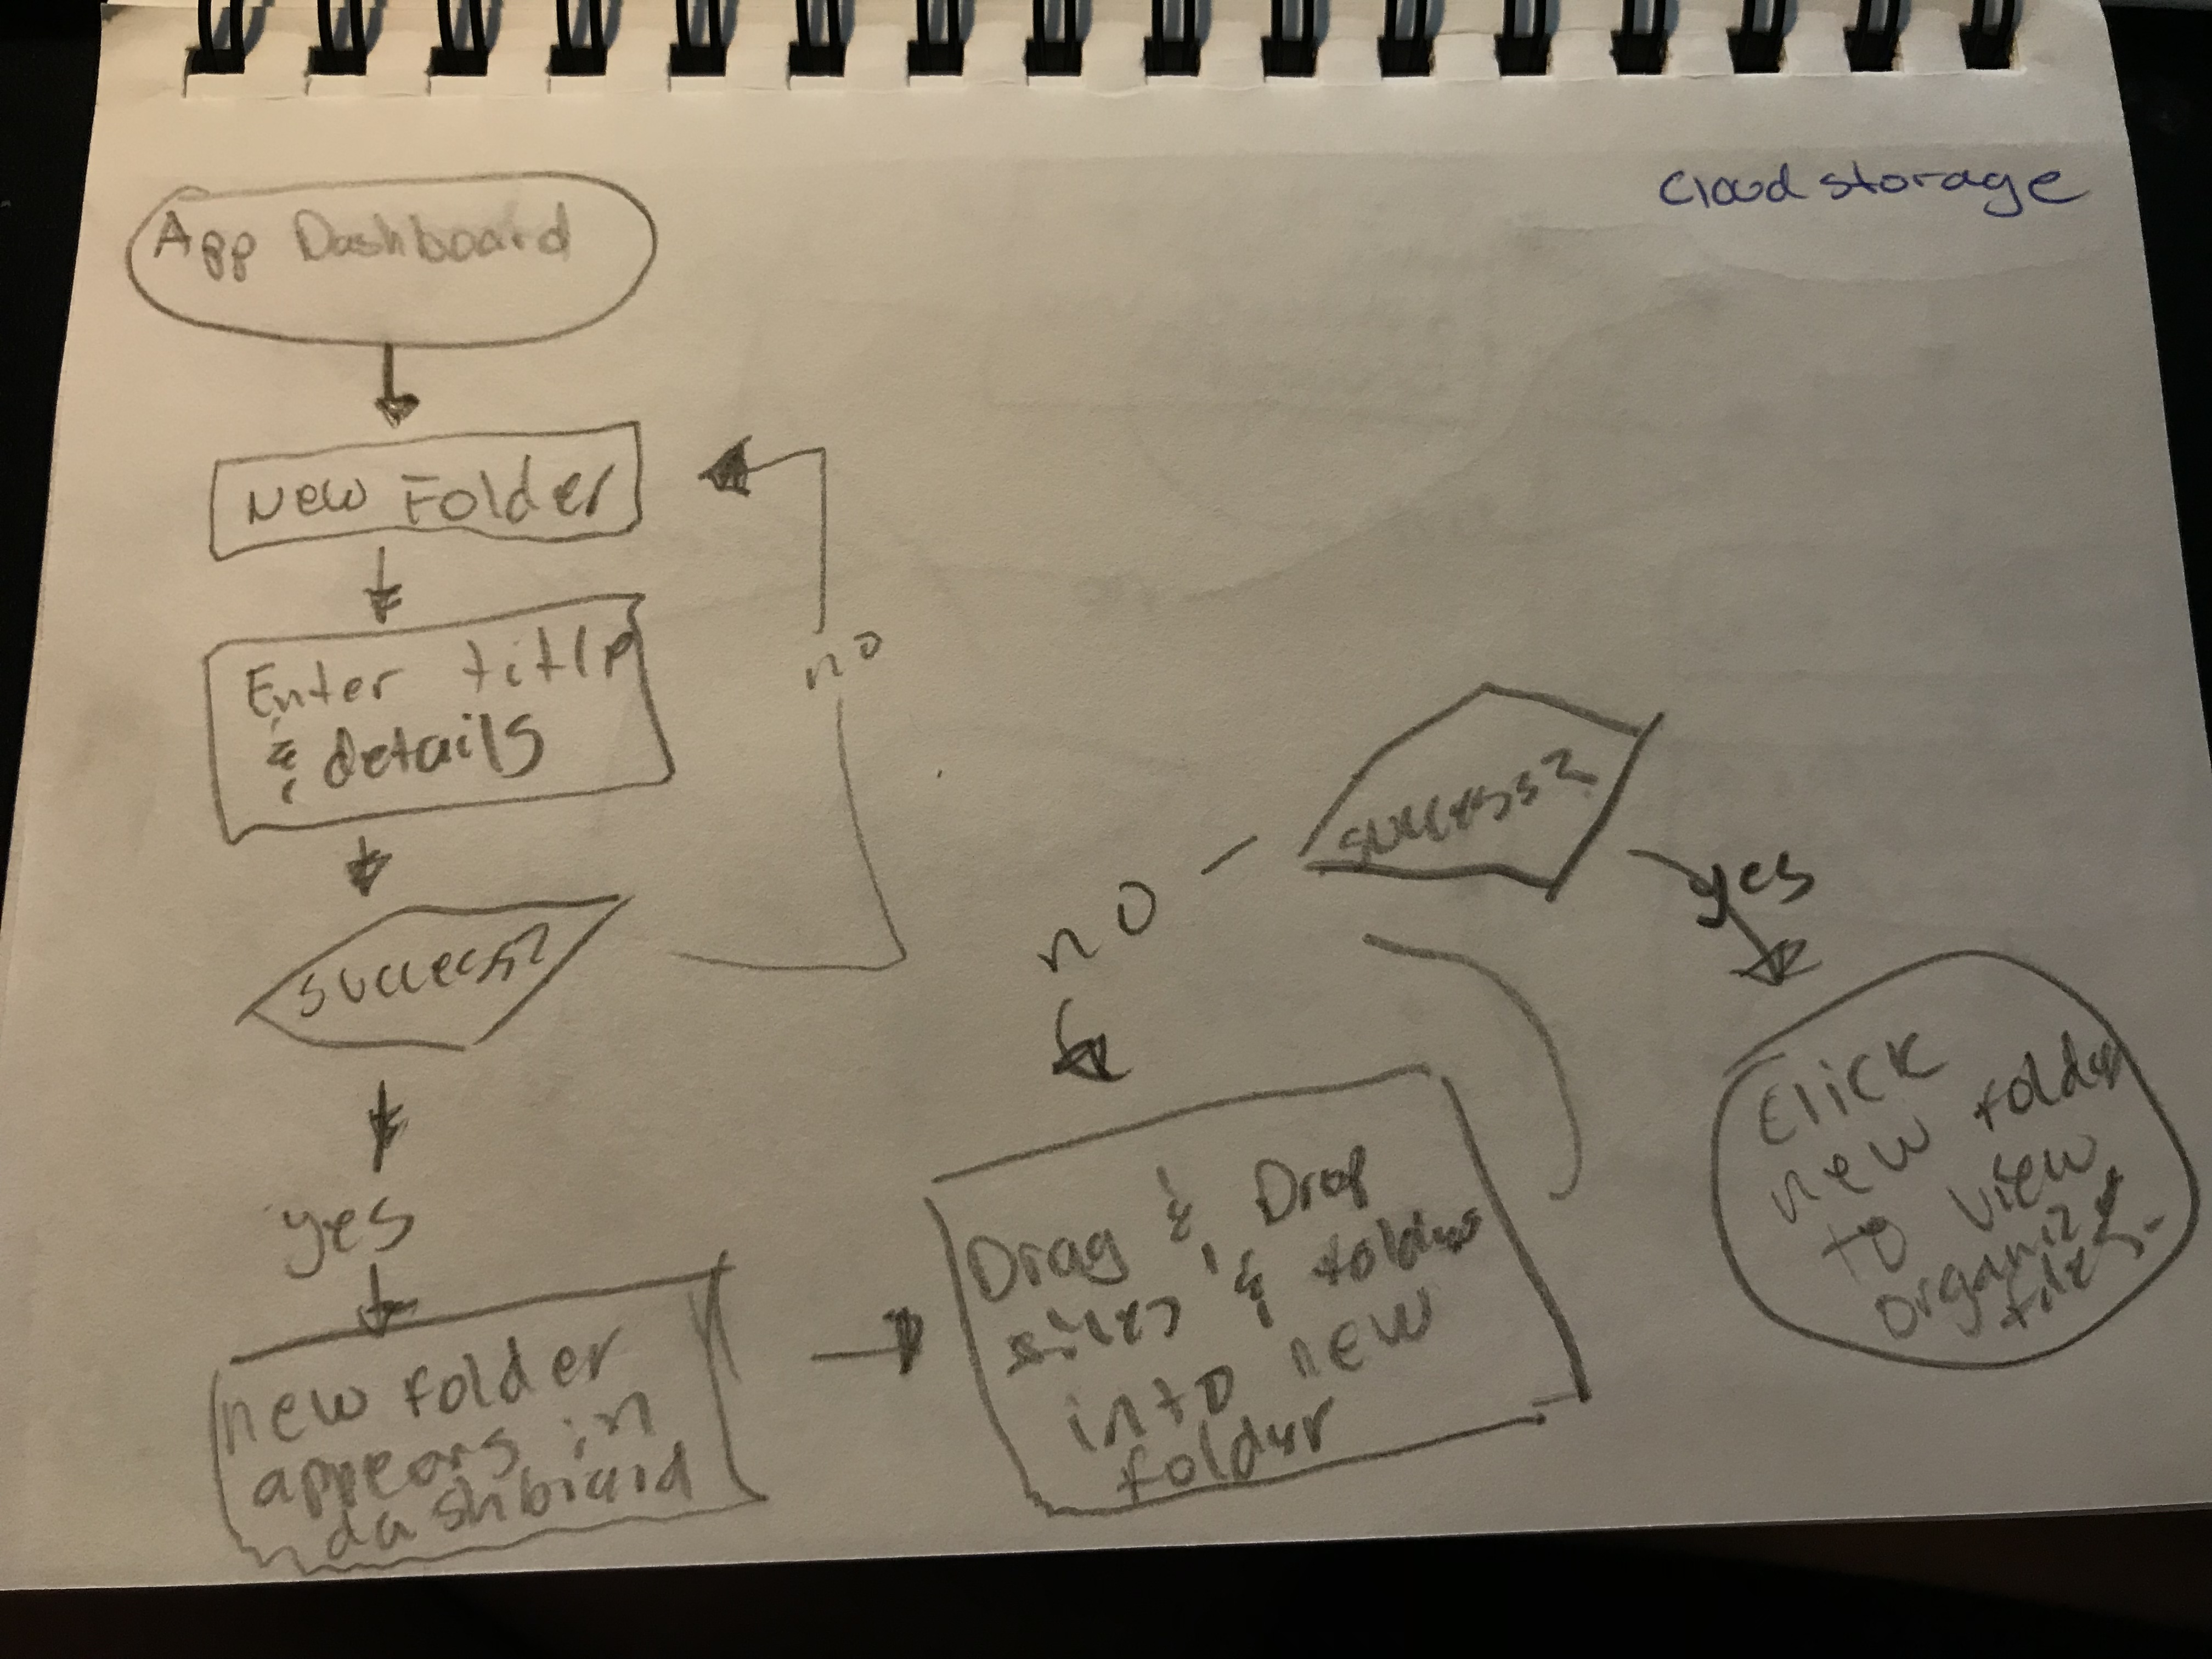 Cloud storage
App Dashboard
New Folder
Enter title
& details
success?
no
yes
new folder
appears in
dashboard
Drag & Drop
files & folders
into new
folder
no
success?
yes
Click
new folder
to view
organized
files.